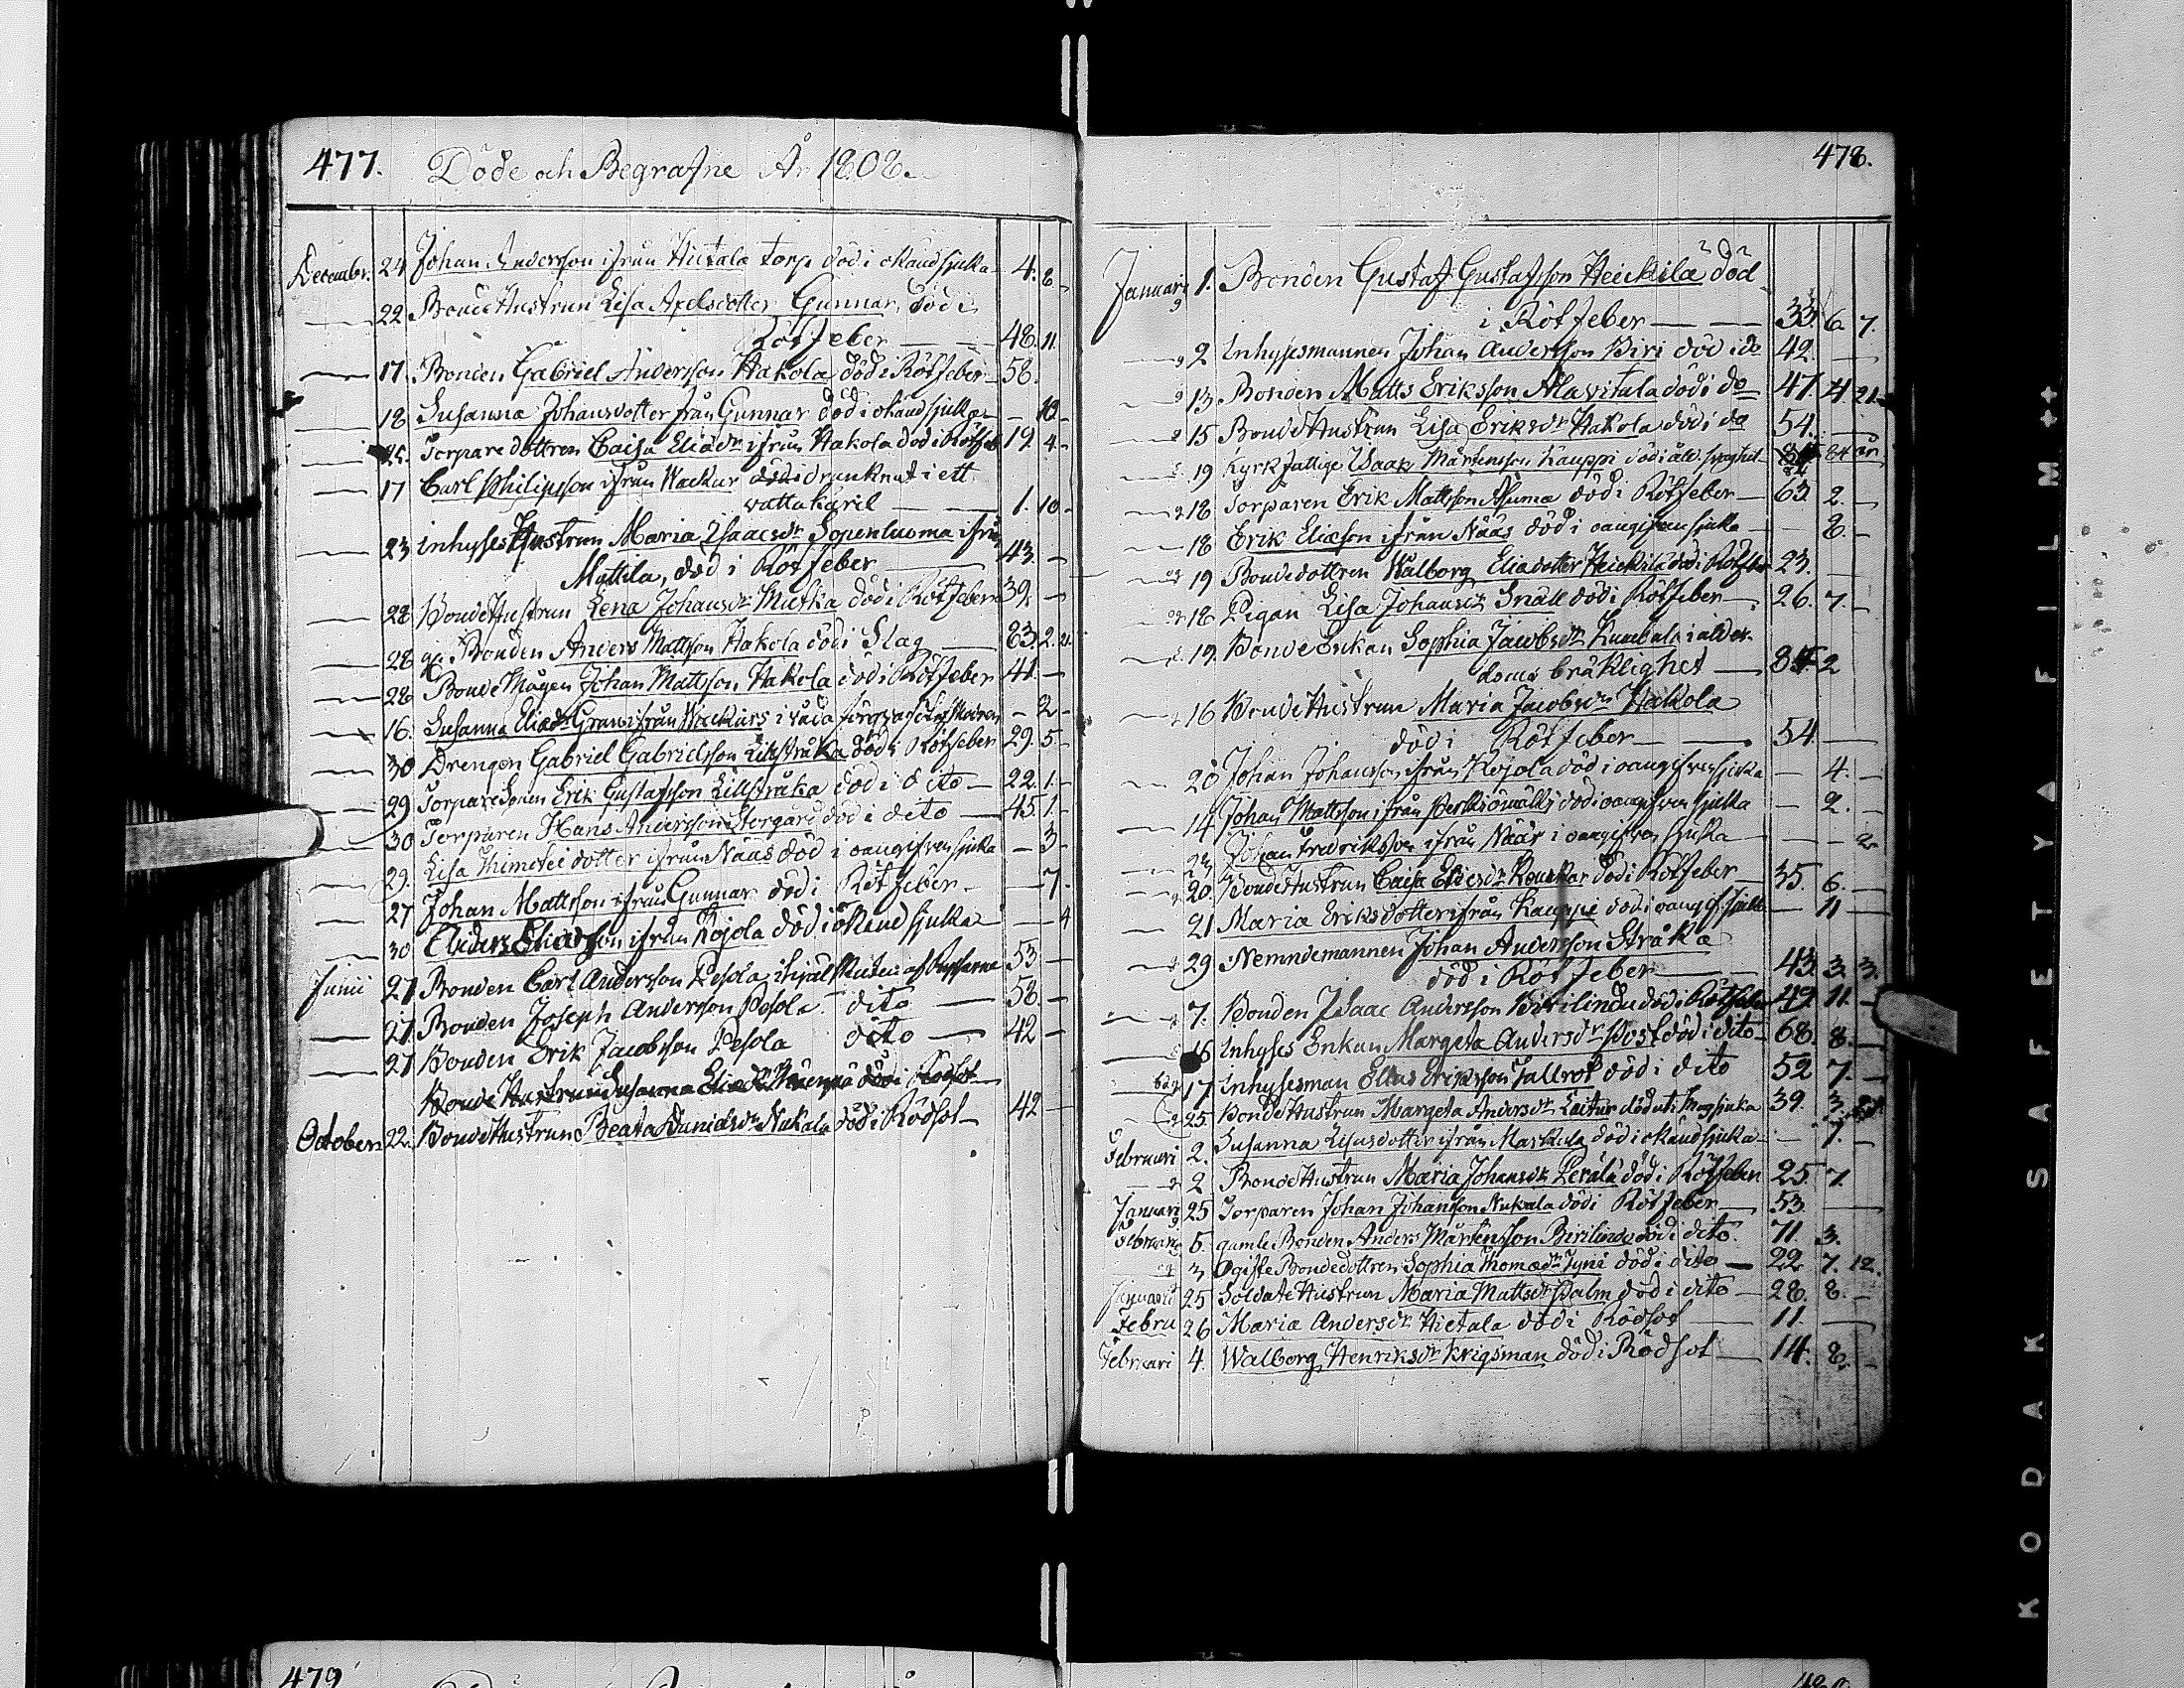 477. Döde och Begrafne År 1808.
Decembr. 24 Johan Andersson ifrån Hietala torp död i okänd sjuka 4. 8 -
22 BondeHustrun Lisa Axelsdotter Gunnar, död i
Rötfeber 48. 11.
17. Bonden Gabriel Andersson Hakola död i Rötfeber 58.
18 Susanna Johansdotter från Gunnar död i okänd sjuka - 10 -
25. Torparedottren Caisa Eliædr ifrån Hakola död i Rötfeb 19 4 -
17 Carl Philipsson ifrån Wackur död i drunknat i ett
wattukäril 1. 10 -
23 inhyses Hustrun Maria Isaacsdr Sopenluoma ifrån
Myttila, död i Rötfeber 43. -
28 BondeHustrun Lena Johansdr Mietka död i Rötfeber 39. -
28 ge. Bonden Anders Mattsson Hakola död i Slag 83. 2. 21.
28 BondeMågen Johan Mattsson Hakola död i Rötfeber 41. -
16. Susanna Eliædr Gran ifrån Wackurs i - 2 -
30 Drengen Gabriel Gabrielsson Lillstråka död i Rötfeber 29. 5. -
29 TorpareSonen Erik Gustafsson Lillstråka död i dito 22. 1. -
30 Torparen Hans Andersson Storgård död i dito 45. 1. -
29. Lisa Thimotei dotter ifrån Näås död i oangifven sjuka - 3 -
27 Johan Mattsson ifrån Gunnar död i Rötfeber - - 7.
30 Anders Eliæsson ifrån Kojola död i okänd sjuka - - 4
Junii 27 Bonden Carl Andersson Pesola ihjälskuten af Ryssarne 53 -
27 Bonden Joseph Andersson Pesola dito 58. -
27 Bonden Erik Jacobsson Pesola dito 42 -
BondeHustrun Susanna Eliædr död i Rödsot
October 22. BondeHustrun Beata Danielsdr Nukala död i Rödsot 42 -
478.
Januarii 1. Bonden Gustaf Gustafsson Heickilä död
i Rötfeber 33. 6. 7.
2 Inhysesmannen Johan Andersson Biri död i do 42. -
13 Bonden Matts Eriksson Alavitala död i do 47. 4 21
15 BondeHustrun Lisa Eriksdr Hakola död i do 54.
19 Kyrkfattige Isaak Mårtensson Kauppi död i åld. svaghet 84 år
18 Torparen Erik Mattsson Asuma död i Rötfeber 63 2. -
18 Erik Eliæson ifrån Näås död i oangifven sjuka - 8. -
19 Bondedottren Walborg Eliadotter Heickilä död i Rötfeber 23. -
18 Pigan Lisa Johansdr Snäll död i Rötfeber 26. 7. -
19. BondeEnkan Sophia Jacobsdr Luukala i ålder-
doms bräklighet 84. 2
16 BondeHustrun Maria Jacobsdr Hakola
död i Rötfeber 54. -
20 Johan Johansson ifrån Kojola död i oangifven sjuka - 4. -
14 Johan Mattsson ifrån död i oangifven sjuka - 2. -
23 Johan Fredriksson ifrån Näås i oangifven sjuka - - 2
20. BondeHustrun Caisa död i Rötfeber 35. 6. -
21 Maria Eriksdotter ifrån Kauppi död i oangif. sjuka - 11 -
29 Nemndemannen Johan Andersson Stråka
död i Rötfeber 43. 3. 3.
7. Bonden Isaac Andersson Birilindu död i Rötfeber 49. 11. -
16 inhyses Enkan Margeta Andersdr Post död i dito 68. 8. -
17 inhysesman Elias Eriksson Tallrot död i dito 52 7. -
25. BondeHustrun Margeta Andersdr död uti Magsjuka 39. 3.
Februari 2. Susanna Elisdotter ifrån Markula död i okänd sjuka - 7. -
2 BondeHustrun Maria Johansdr Perälä död i Rötfeber 25. 7.
Januarii 25 Torparen Johan Johansson Nukala död i Rötfeber 53. -
Februarii 5. gamle Bonden Anders Mårtensson Birilindu död i dito. 71. 3.
3 Ogifte Bondedottren Sophia Thomædr Tyni död i dito 22 7. 12.
Januarii 25 SoldateHustrun Maria Mattsdr Palm död i dito 28. 8. -
Febru 26 Maria Andersdr Hietala död i Rödsot 11. -
Februari 4. Walborg Henriksdr Krigsman död i Rödsot 14. 8. -
479
KODAK SAFETY FILM ++